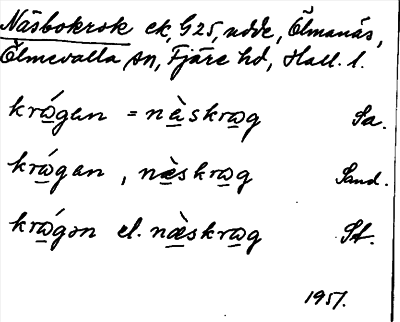 Näsbokrok ek, G25, udde, Ölmanäs,
Ölmevalla sn, Fjäre hd, Hall. l.
krǿgan = nàskrωg Sa.
krǿgan, næ̀skrωg Sand.
krǿgən el. næ̀skrωg St.
1951.